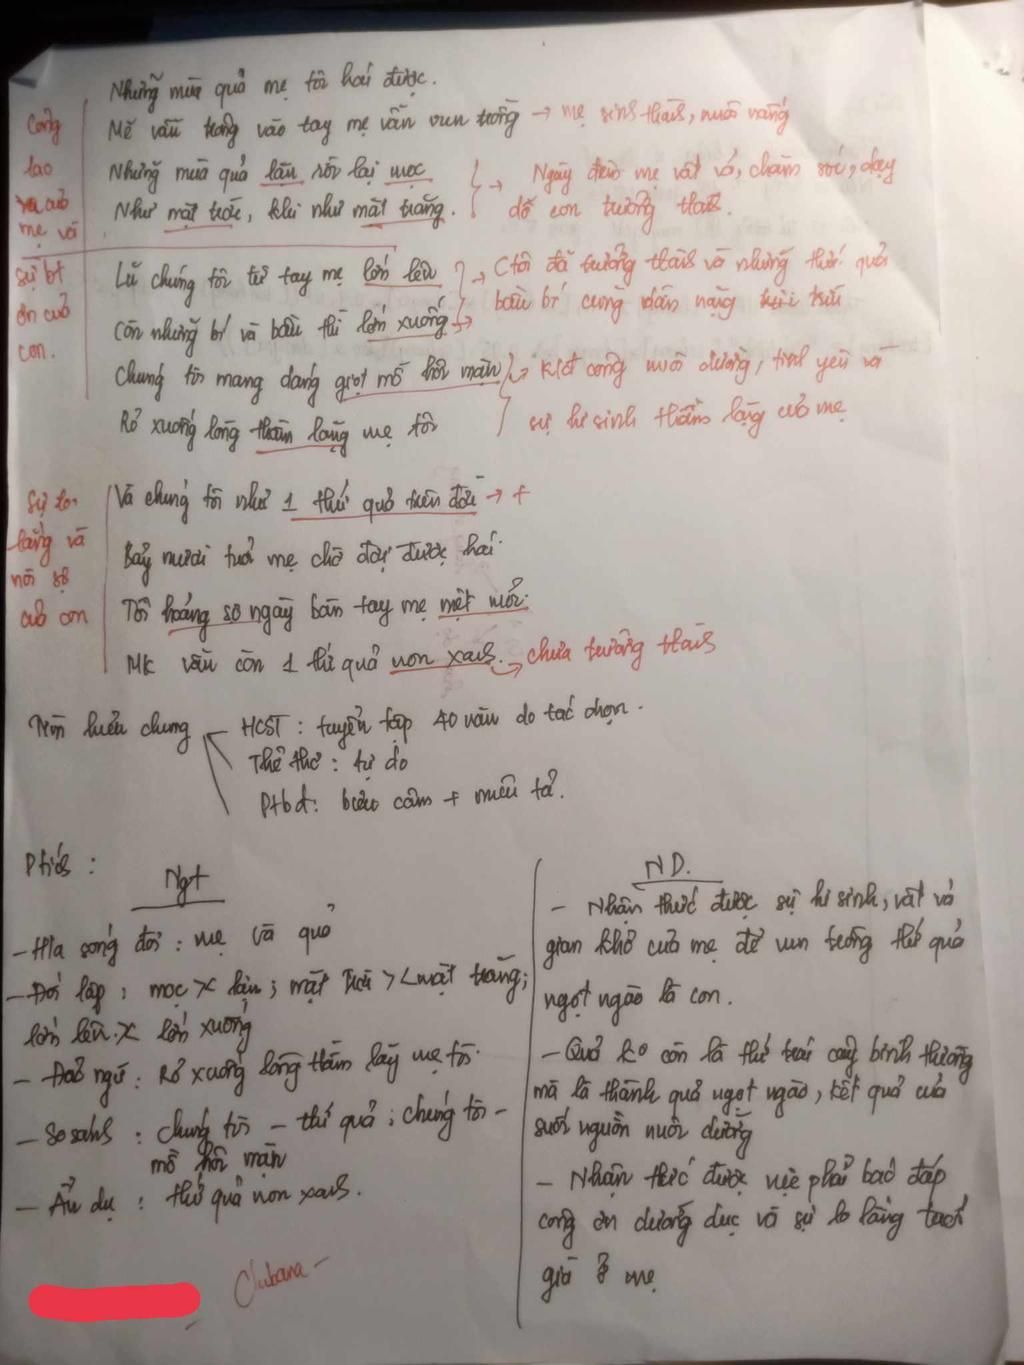 Những mùa quả mẹ tôi hái được.
Mẹ vẫn trông vào tay mẹ vẫn vun trồng → mẹ sinh thành, nuôi nấng
Những mùa quả lặn rồi lại mọc
Như mặt trời, khi như mặt trăng.
→ Ngày đêm mẹ vất vả, chăm sóc, dạy
dỗ con trưởng thành.
Công
lao
của
mẹ và
sự bt
ơn của
con.
Lũ chúng tôi từ tay mẹ lớn lên
Còn những bí và bầu thì lớn xuống
→ Ctôi đã trưởng thành và những thứ quả
bầu bí cũng dần nặng trĩu
Chúng tôi mang dáng giọt mồ hôi mặn
Rỏ xuống lòng thầm lặng mẹ tôi
→ công nuôi dưỡng, tình yêu và
sự hi sinh thầm lặng của mẹ
Sự lo
lắng và
nỗi sợ
của con
Và chúng tôi như 1 thứ quả trên đời → +
Bảy mươi tuổi mẹ chờ đợi được hái.
Tôi hoảng sợ ngày bàn tay mẹ mệt mỏi.
Mk vẫn còn 1 thứ quả non xanh. → chưa trưởng thành
Tìm hiểu chung
HCST: tuyển tập 40 năm do tác chọn.
Thể thơ: tự do
Ptbđ: biểu cảm + miêu tả.
Ptích:
Ngt
- H/a song đôi: mẹ và quả
- Đối lập: mọc >< lặn; mặt trời >< mặt trăng;
lớn lên >< lớn xuống
- Đảo ngữ: Rỏ xuống lòng thầm lặng mẹ tôi.
- So sánh: chúng tôi - thứ quả; chúng tôi -
mồ hôi mặn
- Ẩn dụ: thứ quả non xanh.
ND.
- Nhận thức được sự hi sinh, vất vả
gian khổ của mẹ để vun trồng thứ quả
ngọt ngào là con.
- Quả ko còn là thứ trái cây bình thường
mà là thành quả ngọt ngào, kết quả của
suối nguồn nuôi dưỡng
- Nhận thức được việc phải báo đáp
công ơn dưỡng dục và sự lo lắng tuổi
già ở mẹ